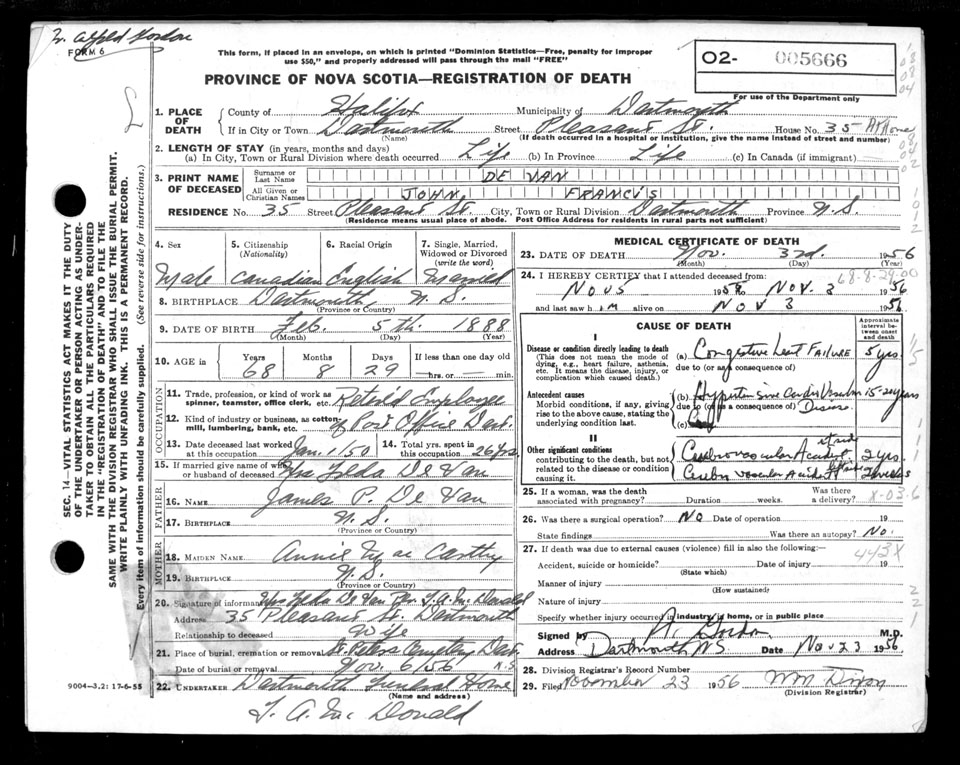 Alfred Gordon
FORM 6
This form, if placed in an envelope, on which is printed "Dominion Statistics—Free, penalty for improper
use $50," and properly addressed will pass through the mail "FREE"
PROVINCE OF NOVA SCOTIA—REGISTRATION OF DEATH
02- 005666
For use of the Department only
1. PLACE OF DEATH County of Halifax Municipality of Dartmouth
If in City or Town Dartmouth Street Pleasant St. House No. 35 At Home
(Name) (If death occurred in a hospital or institution, give the name instead of street and number)
2. LENGTH OF STAY (in years, months and days)
(a) In City, Town or Rural Division where death occurred Life (b) In Province Life (c) In Canada (if immigrant) —
3. PRINT NAME OF DECEASED Surname or Last Name DE VAN
All Given or Christian Names JOHN FRANCIS
RESIDENCE No. 35 Street Pleasant St. City, Town or Rural Division Dartmouth Province N.S.
(Residence means usual place of abode. Post Office Address for residents in rural parts not sufficient)
4. Sex Male
5. Citizenship (Nationality) Canadian
6. Racial Origin English
7. Single, Married, Widowed or Divorced (write the word) Married
8. BIRTHPLACE Dartmouth N.S.
(Province or Country)
9. DATE OF BIRTH Feb. 5th 1888
(Month) (Day) (Year)
10. AGE in Years 68 Months 8 Days 29 If less than one day old — hrs. or — min.
OCCUPATION
11. Trade, profession, or kind of work as spinner, teamster, office clerk, etc. Retired Employee
12. Kind of industry or business, as cotton mill, lumbering, bank, etc. of Post Office Dart.
13. Date deceased last worked at this occupation Jan 1/50
14. Total yrs. spent in this occupation 26 yrs
15. If married give name of wife or husband of deceased Mrs Zelda De Van
FATHER
16. NAME James P. De Van
17. BIRTHPLACE N.S.
(Province or Country)
MOTHER
18. MAIDEN NAME Annie Mac Carthy
19. BIRTHPLACE N.S.
(Province or Country)
20. Signature of informant Mrs Zelda De Van Per T.A. Mc Donald
Address 35 Pleasant St. Dartmouth
Relationship to deceased Wife
21. Place of burial, cremation or removal St. Peters Cemetery Dart. N.S
Date of burial or removal Nov. 6/56
22. UNDERTAKER Dartmouth Funeral Home
(Name and address)
T. A. Mc Donald
9004—3.2: 17-6-55
SEC. 14—VITAL STATISTICS ACT MAKES IT THE DUTY
OF THE UNDERTAKER OR PERSON ACTING AS UNDER-
TAKER TO OBTAIN ALL THE PARTICULARS REQUIRED
IN THE "REGISTRATION OF DEATH" AND TO FILE THE
SAME WITH THE DIVISION REGISTRAR WHO SHALL ISSUE THE BURIAL PERMIT.
WRITE PLAINLY WITH UNFADING INK. THIS IS A PERMANENT RECORD.
Every item of information should be carefully supplied. (See reverse side for instructions.)
MEDICAL CERTIFICATE OF DEATH
23. DATE OF DEATH Nov. 3rd. 1956
(Month) (Day) (Year)
68-8-29-00
24. I HEREBY CERTIFY that I attended deceased from:
Nov 5 195 to Nov. 3 1956
and last saw him alive on Nov 3 1956
CAUSE OF DEATH
Approximate interval between onset and death
I
Disease or condition directly leading to death
(This does not mean the mode of dying, e.g., heart failure, asthenia, etc. It means the disease, injury, or complication which caused death.)
(a) Congestive Heart Failure 5 yrs.
due to (or as a consequence of)
Antecedent causes
Morbid conditions, if any, giving rise to the above cause, stating the underlying condition last.
(b) Hypertensive Cardio Vascular Disease 15-20 years
due to (or as a consequence of)
(c)
II
Other significant conditions
contributing to the death, but not related to the disease or condition causing it.
Cerebrovascular Accident 2 yrs.
Cerebrovascular Accident 2 weeks
25. If a woman, was the death associated with pregnancy? Duration weeks. Was there a delivery?
X-03-6
26. Was there a surgical operation? No Date of operation 19
State findings Was there an autopsy? No.
27. If death was due to external causes (violence) fill in also the following:—
443X
Accident, suicide or homicide? Date of injury 19
(State which)
Manner of injury
(How sustained)
Nature of injury
Specify whether injury occurred in industry, in home, or in public place
Signed by A. Gordon M.D.
Address Dartmouth NS Date Nov 23 1956
28. Division Registrar's Record Number
29. Filed November 23 1956 Wm Dixon
(Division Registrar)